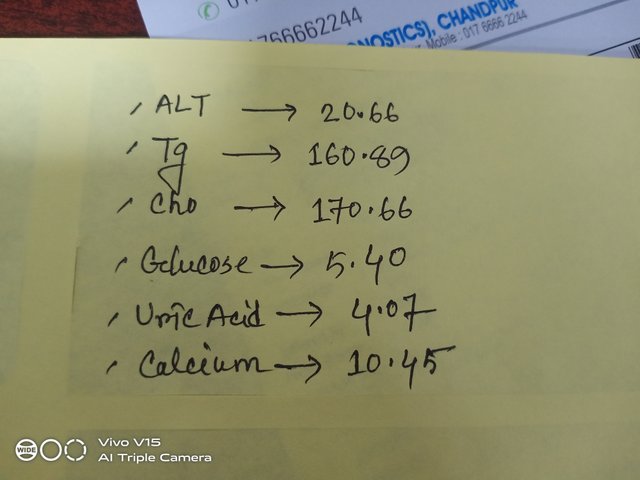 766662244
NOSTICS), CHANDPUR
Mobile: 017 6666 2244
ALT → 20.66
Tg → 160.89
Cho → 170.66
Gelucose → 5.40
Uric Acid → 4.07
Calcium → 10.45
WIDE Vivo V15
AI Triple Camera